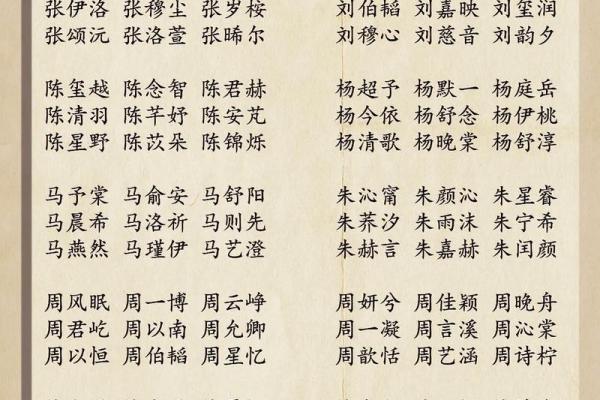 张伊洛 张穆尘 张岁桉 刘伯韬 刘嘉映 刘玺润
张颂沅 张洛萱 张晞尔 刘穆心 刘慈音 刘韵夕
陈玺越 陈念智 陈君赫 杨超予 杨默一 杨庭岳
陈清羽 陈芊妤 陈安芃 杨今依 杨舒念 杨伊桃
陈星野 陈苡朵 陈锦烁 杨清歌 杨晚棠 杨舒淳
马予棠 马俞安 马舒阳 朱沁甯 朱颜沁 朱星睿
马晨希 马洛祈 马则先 朱荞汐 朱雨沫 朱宁希
马燕然 马瑾伊 马艺澄 朱赫言 朱嘉赫 朱闰颜
周风眠 周一博 周云峥 周妍兮 周佳颖 周晚舟
周君屹 周以南 周允卿 周一凝 周言溪 周沁棠
周以恒 周伯韬 周星忆 周歆恬 周艺涵 周诗柠